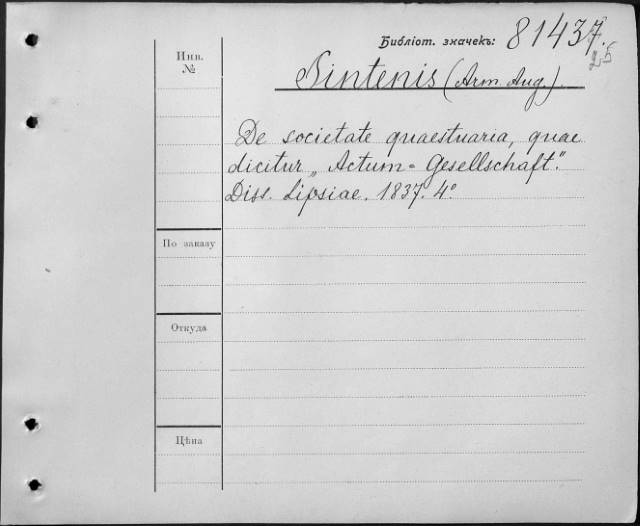 Библіот. значекъ: 81437.
Инв.
№
Sintenis (Arm. Aug.).
De societate quaestuaria, quae
dicitur „Actum-Gesellschaft“.
Diss. Lipsiae. 1837. 4°
По заказу
Откуда
Цѣна